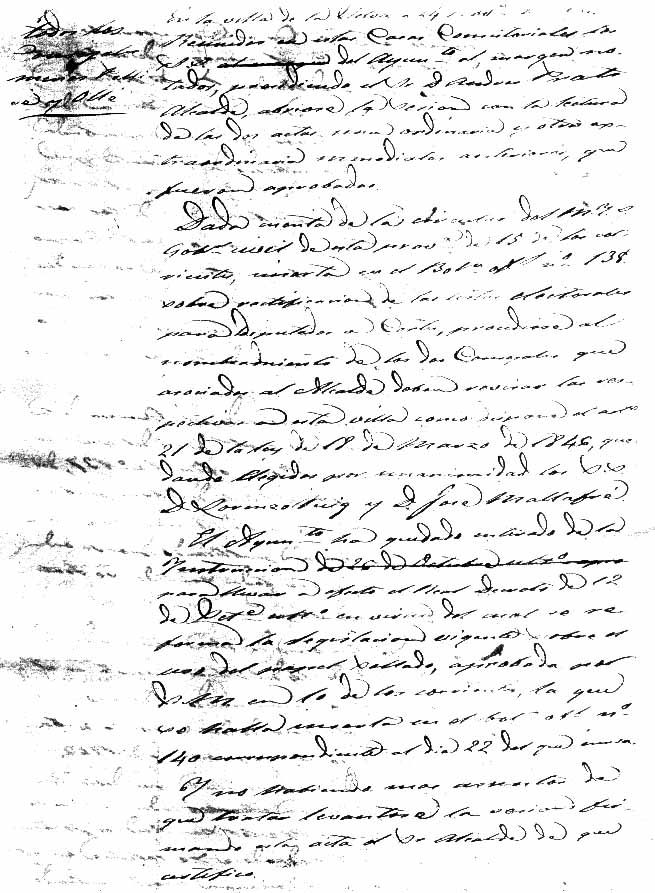 En la villa de la Selva a 24
Reunidos en estas Casas Consistoriales los
Sres del Ayunto al margen no-
tados, presidiendo el Sr D. Andres
Alcalde, abriose la sesion con la lectura
de las dos actas una ordinaria y otra ex-
traordinaria inmediatas anteriores, que
fueron aprobadas.
Dada cuenta de la circular del M. Y. S.
Gobr civil de esta prova de 15 de los cor-
rientes, inserta en el Boln ofl no 138
sobre rectificacion de las listas electorales
para Diputados a Cortes, procediose al
nombramiento de los dos Concejales que
asociados al Alcalde deben revisar las res-
pectivas a esta villa como dispone el arto
21 de la ley de 18 de Marzo de 1846, que-
dando elegidos por unanimidad los SS.
D. Lorenzo Puig y D. José Mallafré
El Ayunto ha quedado enterado de la
Instruccion de 26 de Octubre
para llevar a efecto el Real Decreto de 12
de Sete ultimo en virtud del cual se re-
forma la legislacion vigente sobre el
uso del papel sellado, aprobada por
S. M. en 10 de los corrientes, la que
se halla inserta en el bol. ofl no
140 correspondiente al dia 22 del que cursa.
Y no habiendo mas asuntos de
que tratar levantose la sesion fir-
mando esta acta el Sr Alcalde de que
certifico.